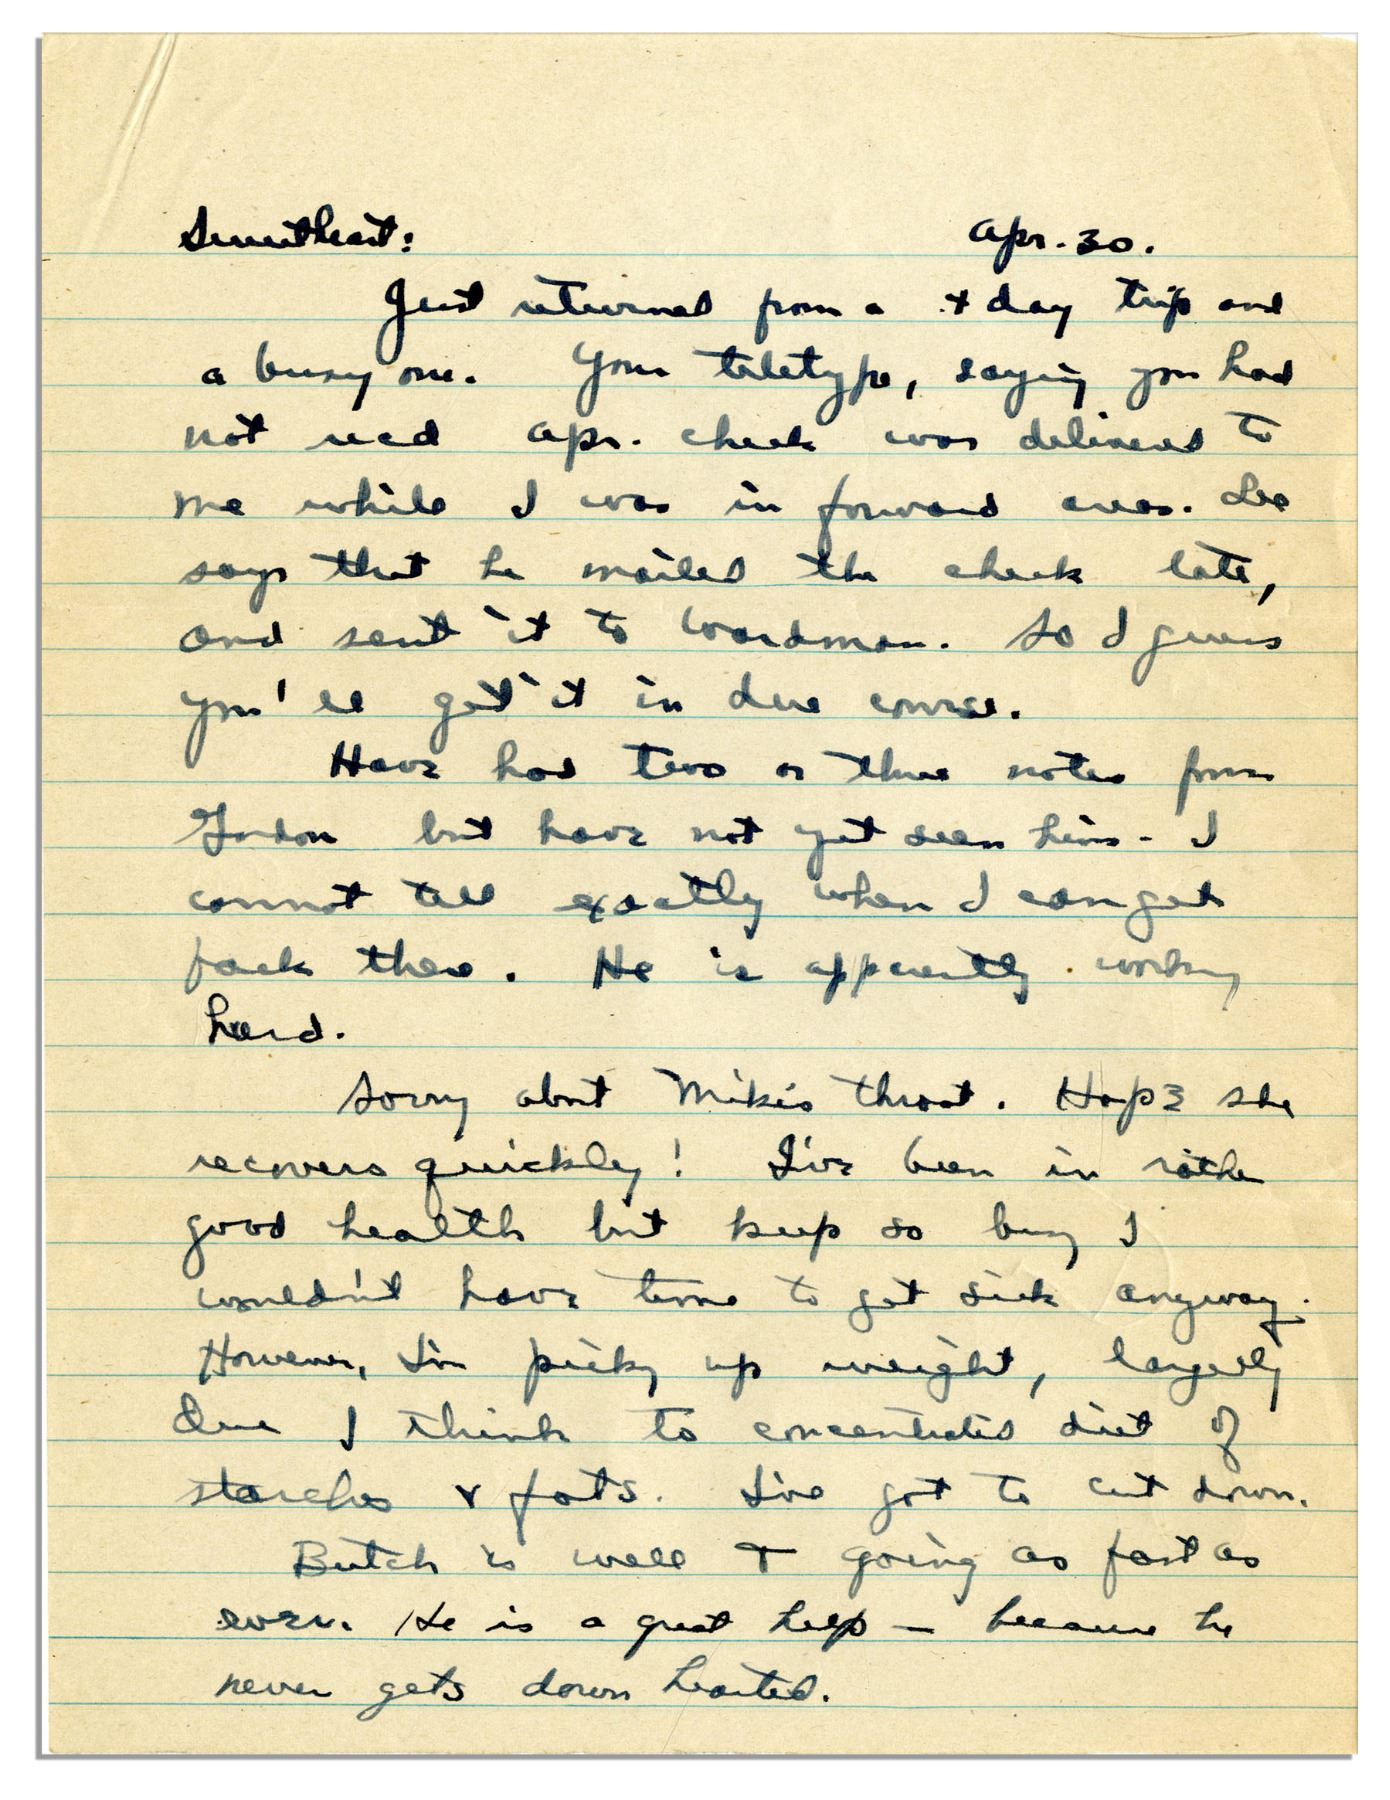 Sweetheart: Apr. 30.
Just returned from a 4 day trip and
a busy one. Your teletype, saying you had
not recd Apr. check was delivered to
me while I was in forward areas. Lee
says that he mailed the check late,
and sent it to Wardman. So I guess
you'll get it in due course.
Have had two or three notes from
Gordon but have not yet seen him - I
cannot tell exactly when I can get
back there. He is apparently working
hard.
Sorry about Mike's throat. Hope she
recovers quickly! I've been in rather
good health but keep so busy I
wouldn't have time to get sick anyway.
However, I'm picking up weight, largely
due I think to concentrated diet of
starches & fats. I've got to cut down.
Butch is well & going as fast as
ever. He is a great help — because he
never gets down hearted.